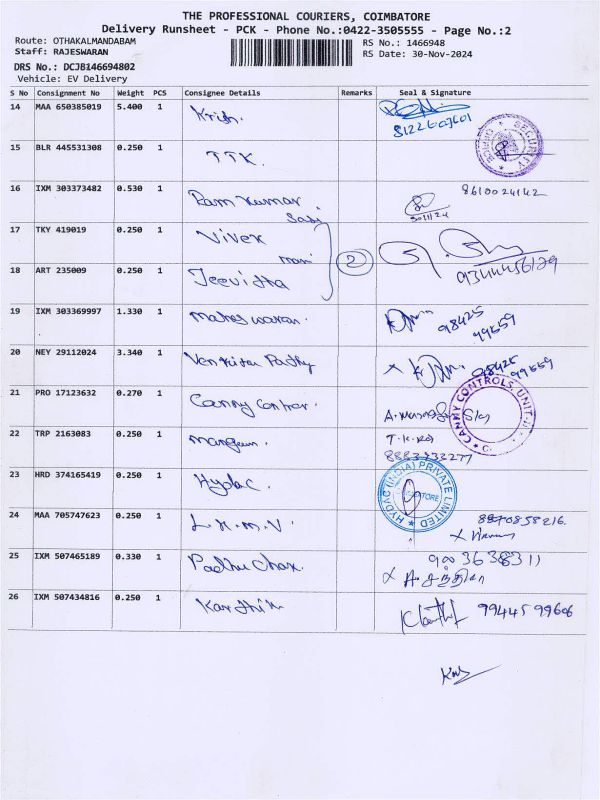 THE PROFESSIONAL COURIERS, COIMBATORE
Delivery Runsheet - PCK - Phone No.:0422-3505555 - Page No.:2
Route: OTHAKALMANDABAM
Staff: RAJESWARAN
RS No.: 1466948
RS Date: 30-Nov-2024
DRS No.: DCJB146694802
Vehicle: EV Delivery
S No Consignment No Weight PCS Consignee Details Remarks Seal & Signature
14 MAA 650385019 5.400 1 Krish.
15 BLR 445531308 0.250 1 TTK. SECURITY
16 IXM 303373482 0.530 1 Ram Kumar 8610024142
30/11/24
17 TKY 419019 0.250 1 Vivek 2
18 ART 235009 0.250 1 Jeevitha
19 IXM 303369997 1.330 1 Maheswaran. 98425
99659
20 NEY 29112024 3.340 1 98425
99659
21 PRO 17123632 0.270 1 Canny Control. CANNY CONTROLS, UNIT
22 TRP 2163083 0.250 1
23 HRD 374165419 0.250 1 Hydac. HYDAC (INDIA) PRIVATE LIMITED
24 MAA 705747623 0.250 1 8870858216.
25 IXM 507465189 0.330 1
26 IXM 507434816 0.250 1 Karthik 99445 99606